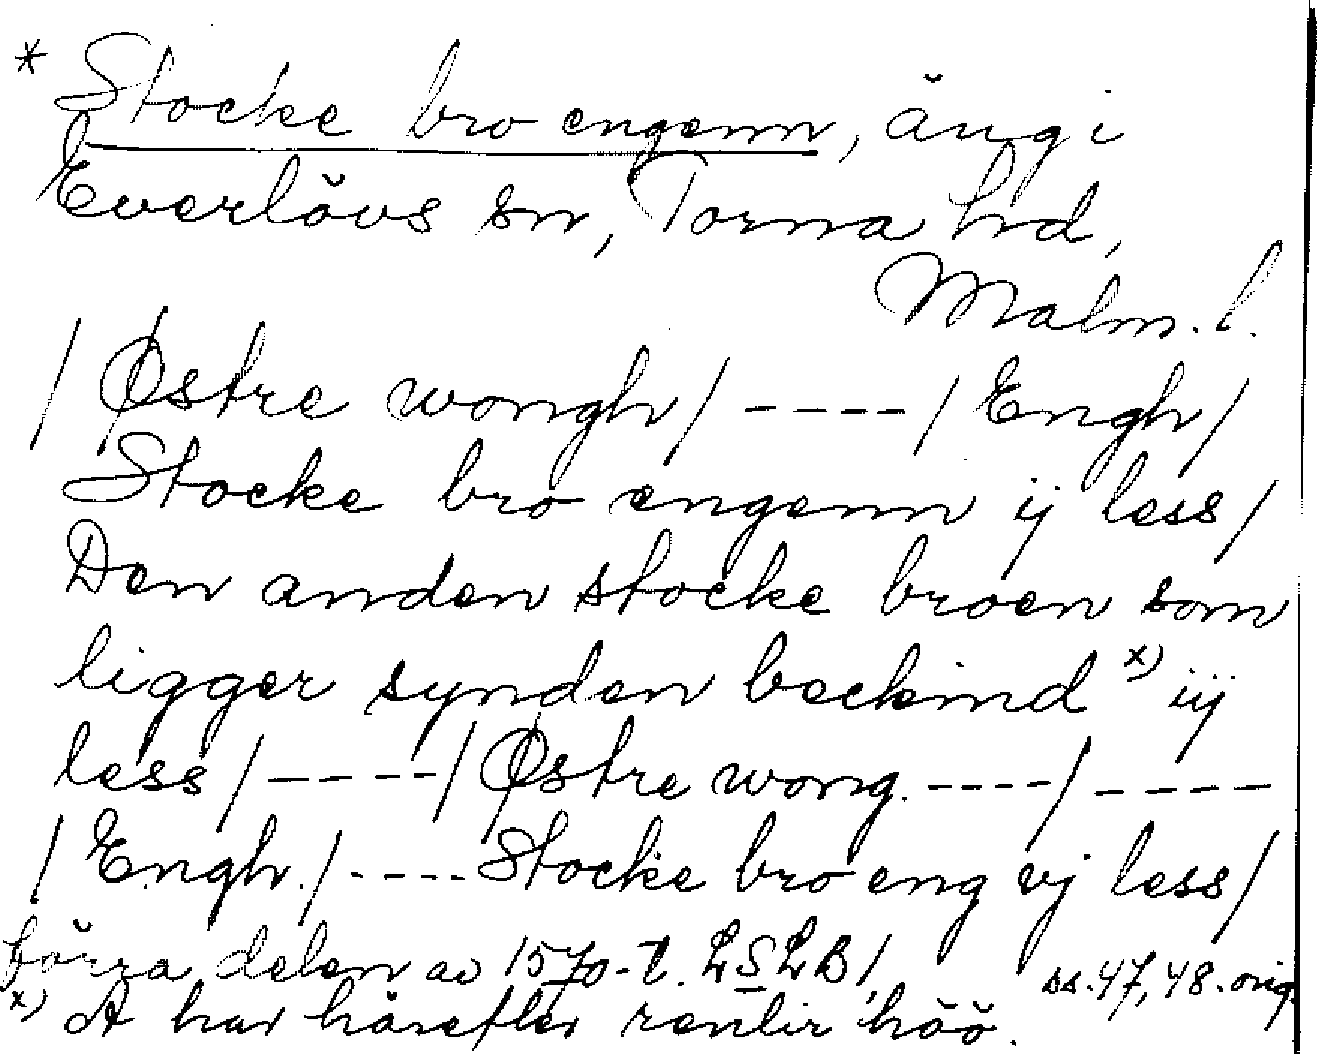 * Stocke bro engenn, äng i
Everlövs sn, Torna hd,
Malm. l.
/ Østre wongh / ---- / Engh /
Stocke bro engenn ij less /
Den anden stocke broen som
ligger synden beckind x) iij
less / ---- / Østre wong. ---- / -----
/ Engh. / ---- Stocke bro eng vj less /
förra delen av 1570-t. LSLB 1, ss. 47, 48. orig.
x) A har härefter renlir höö.